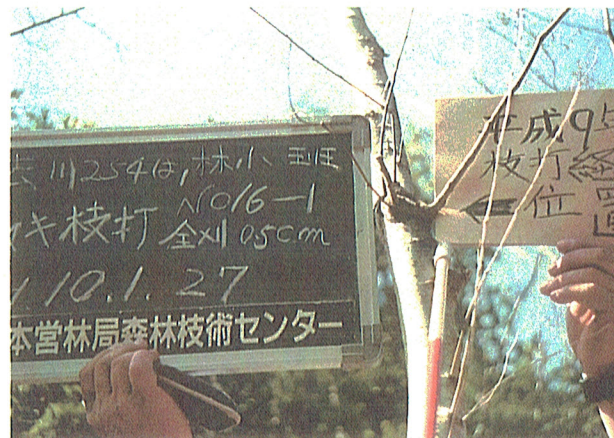 川254は,林小班
NO16-1
キ枝打 全刈 05cm
10.1.27
本営林局森林技術センター
平成9年
枝打
位置